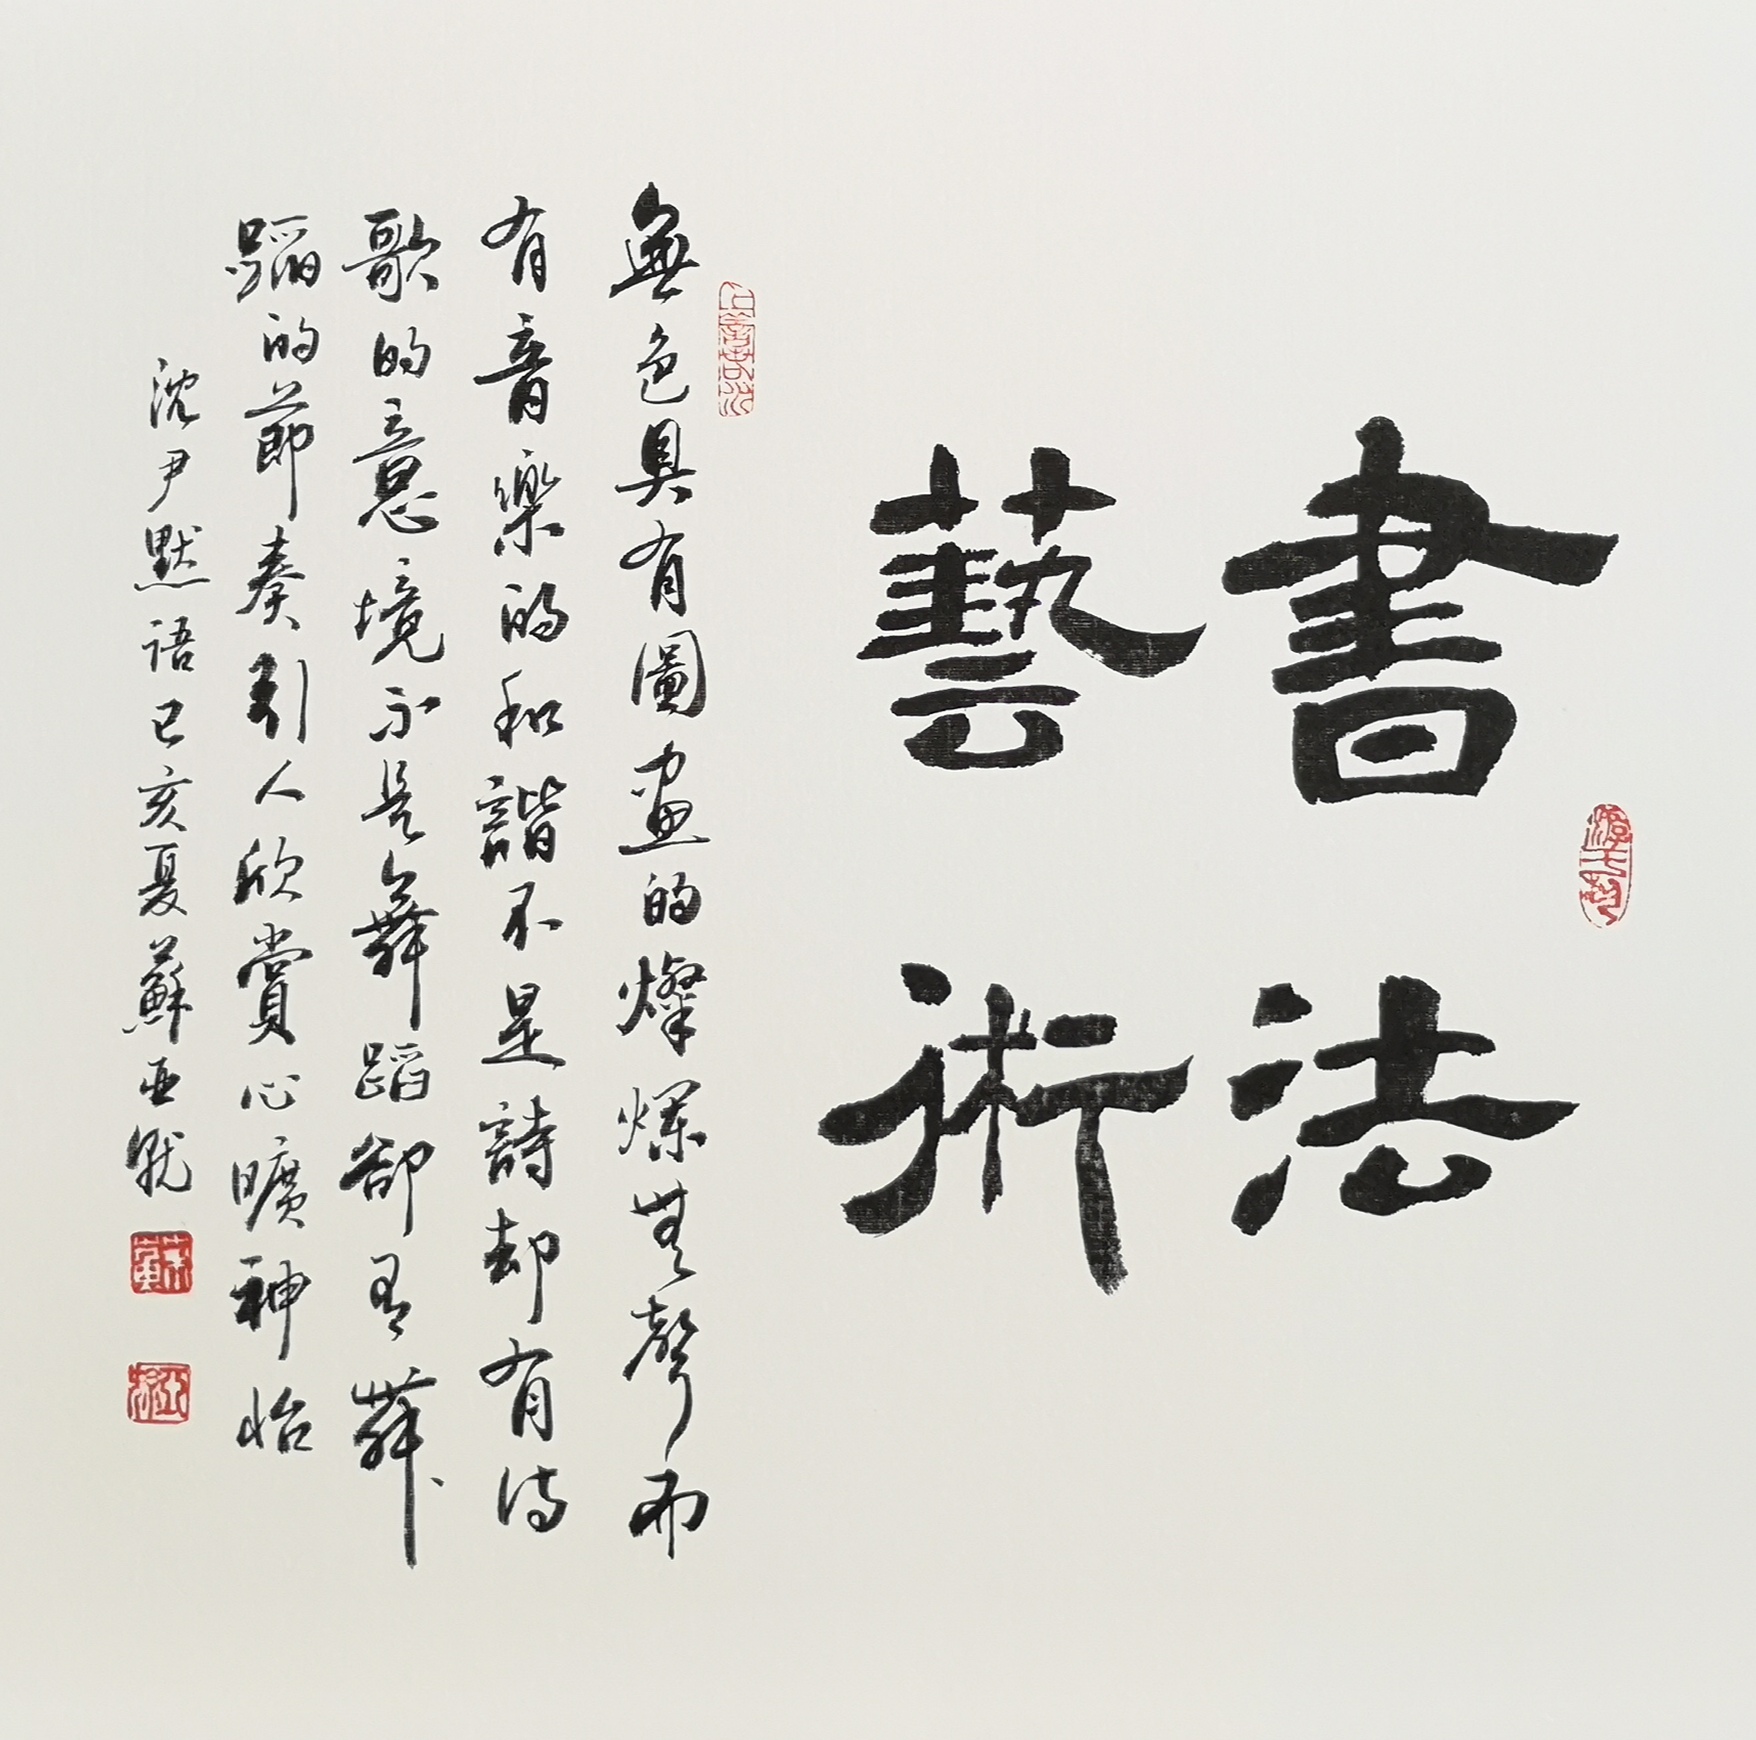 書法
藝術
無色具有圖畫的燦爛無聲而
有音樂的和諧不是詩却有詩
歌的意境不是舞蹈卻有舞
蹈的節奏引人欣賞心曠神怡
沈尹默語己亥夏蘇亞